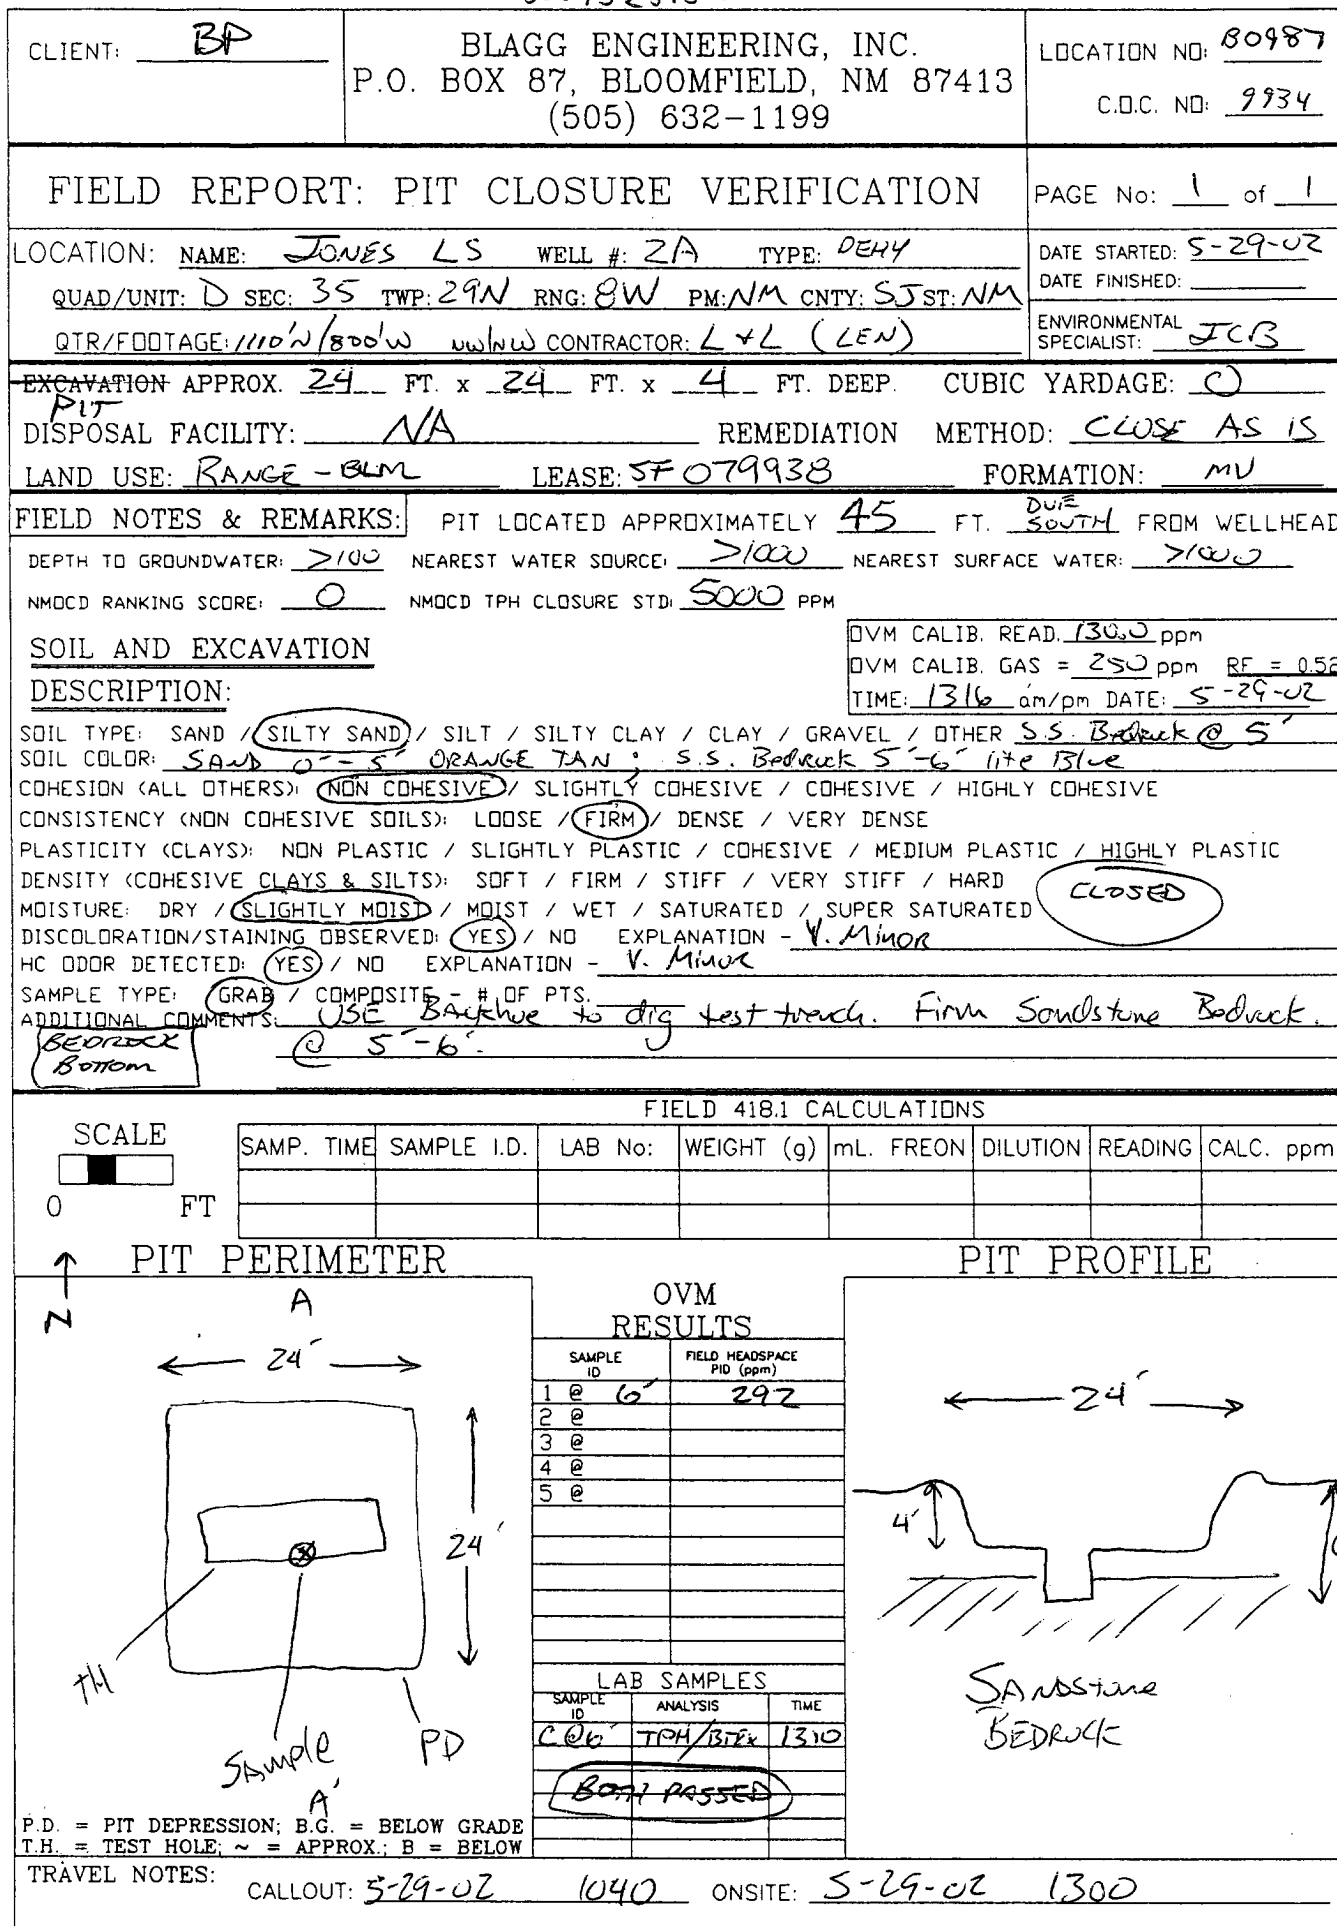 CLIENT: BP
BLAGG ENGINEERING, INC.
P.O. BOX 87, BLOOMFIELD, NM 87413
(505) 632-1199
LOCATION NO: B0987
C.O.C. NO: 9934
FIELD REPORT: PIT CLOSURE VERIFICATION
PAGE No: 1 of 1
LOCATION: NAME: JONES LS WELL #: 2A TYPE: DEHY
QUAD/UNIT: D SEC: 35 TWP: 29N RNG: 8W PM: NM CNTY: SJ ST: NM
QTR/FOOTAGE: 1110'N/800'W NW/NW CONTRACTOR: L+L (LEN)
DATE STARTED: 5-29-02
DATE FINISHED:
ENVIRONMENTAL
SPECIALIST: JCB
EXCAVATION APPROX. 24 FT. x 24 FT. x 4 FT. DEEP. CUBIC YARDAGE: 0
PIT
DISPOSAL FACILITY: NA REMEDIATION METHOD: CLOSE AS IS
LAND USE: RANGE - BLM LEASE: SF 079938 FORMATION: MV
FIELD NOTES & REMARKS: PIT LOCATED APPROXIMATELY 45 FT. DUE SOUTH FROM WELLHEAD
DEPTH TO GROUNDWATER: >100 NEAREST WATER SOURCE: >1000 NEAREST SURFACE WATER: >1000
NMOCD RANKING SCORE: 0 NMOCD TPH CLOSURE STD: 5000 PPM
SOIL AND EXCAVATION
DESCRIPTION:
OVM CALIB. READ. 130.0 ppm
OVM CALIB. GAS = 250 ppm RF = 0.52
TIME: 1316 am/pm DATE: 5-29-02
SOIL TYPE: SAND / SILTY SAND / SILT / SILTY CLAY / CLAY / GRAVEL / OTHER S.S. Bedrock @ 5'
SOIL COLOR: SAND 0'-5' ORANGE TAN; S.S. Bedrock 5'-6' lite Blue
COHESION (ALL OTHERS): NON COHESIVE / SLIGHTLY COHESIVE / COHESIVE / HIGHLY COHESIVE
CONSISTENCY (NON COHESIVE SOILS): LOOSE / FIRM / DENSE / VERY DENSE
PLASTICITY (CLAYS): NON PLASTIC / SLIGHTLY PLASTIC / COHESIVE / MEDIUM PLASTIC / HIGHLY PLASTIC
DENSITY (COHESIVE CLAYS & SILTS): SOFT / FIRM / STIFF / VERY STIFF / HARD
CLOSED
MOISTURE: DRY / SLIGHTLY MOIST / MOIST / WET / SATURATED / SUPER SATURATED
DISCOLORATION/STAINING OBSERVED: YES / NO EXPLANATION - V. Minor
HC ODOR DETECTED: YES / NO EXPLANATION - V. Minor
SAMPLE TYPE: GRAB / COMPOSITE - # OF PTS.
ADDITIONAL COMMENTS: USE Backhoe to dig test trench. Firm Sandstone Bedrock.
@ 5'-6'.
BEDROCK
Bottom
FIELD 418.1 CALCULATIONS
SCALE
0 FT
SAMP. TIME SAMPLE I.D. LAB No: WEIGHT (g) mL. FREON DILUTION READING CALC. ppm
PIT PERIMETER
PIT PROFILE
N
A
24'
24'
TH
Sample
PD
A'
OVM
RESULTS
SAMPLE ID FIELD HEADSPACE PID (ppm)
1 @ 6' 292
2 @
3 @
4 @
5 @
LAB SAMPLES
SAMPLE ID ANALYSIS TIME
C@6' TPH/BTEX 1310
BOTH PASSED
24'
4'
SANDSTONE
BEDROCK
P.D. = PIT DEPRESSION; B.G. = BELOW GRADE
T.H. = TEST HOLE; ~ = APPROX.; B = BELOW
TRAVEL NOTES: CALLOUT: 5-29-02 1040 ONSITE: 5-29-02 1300